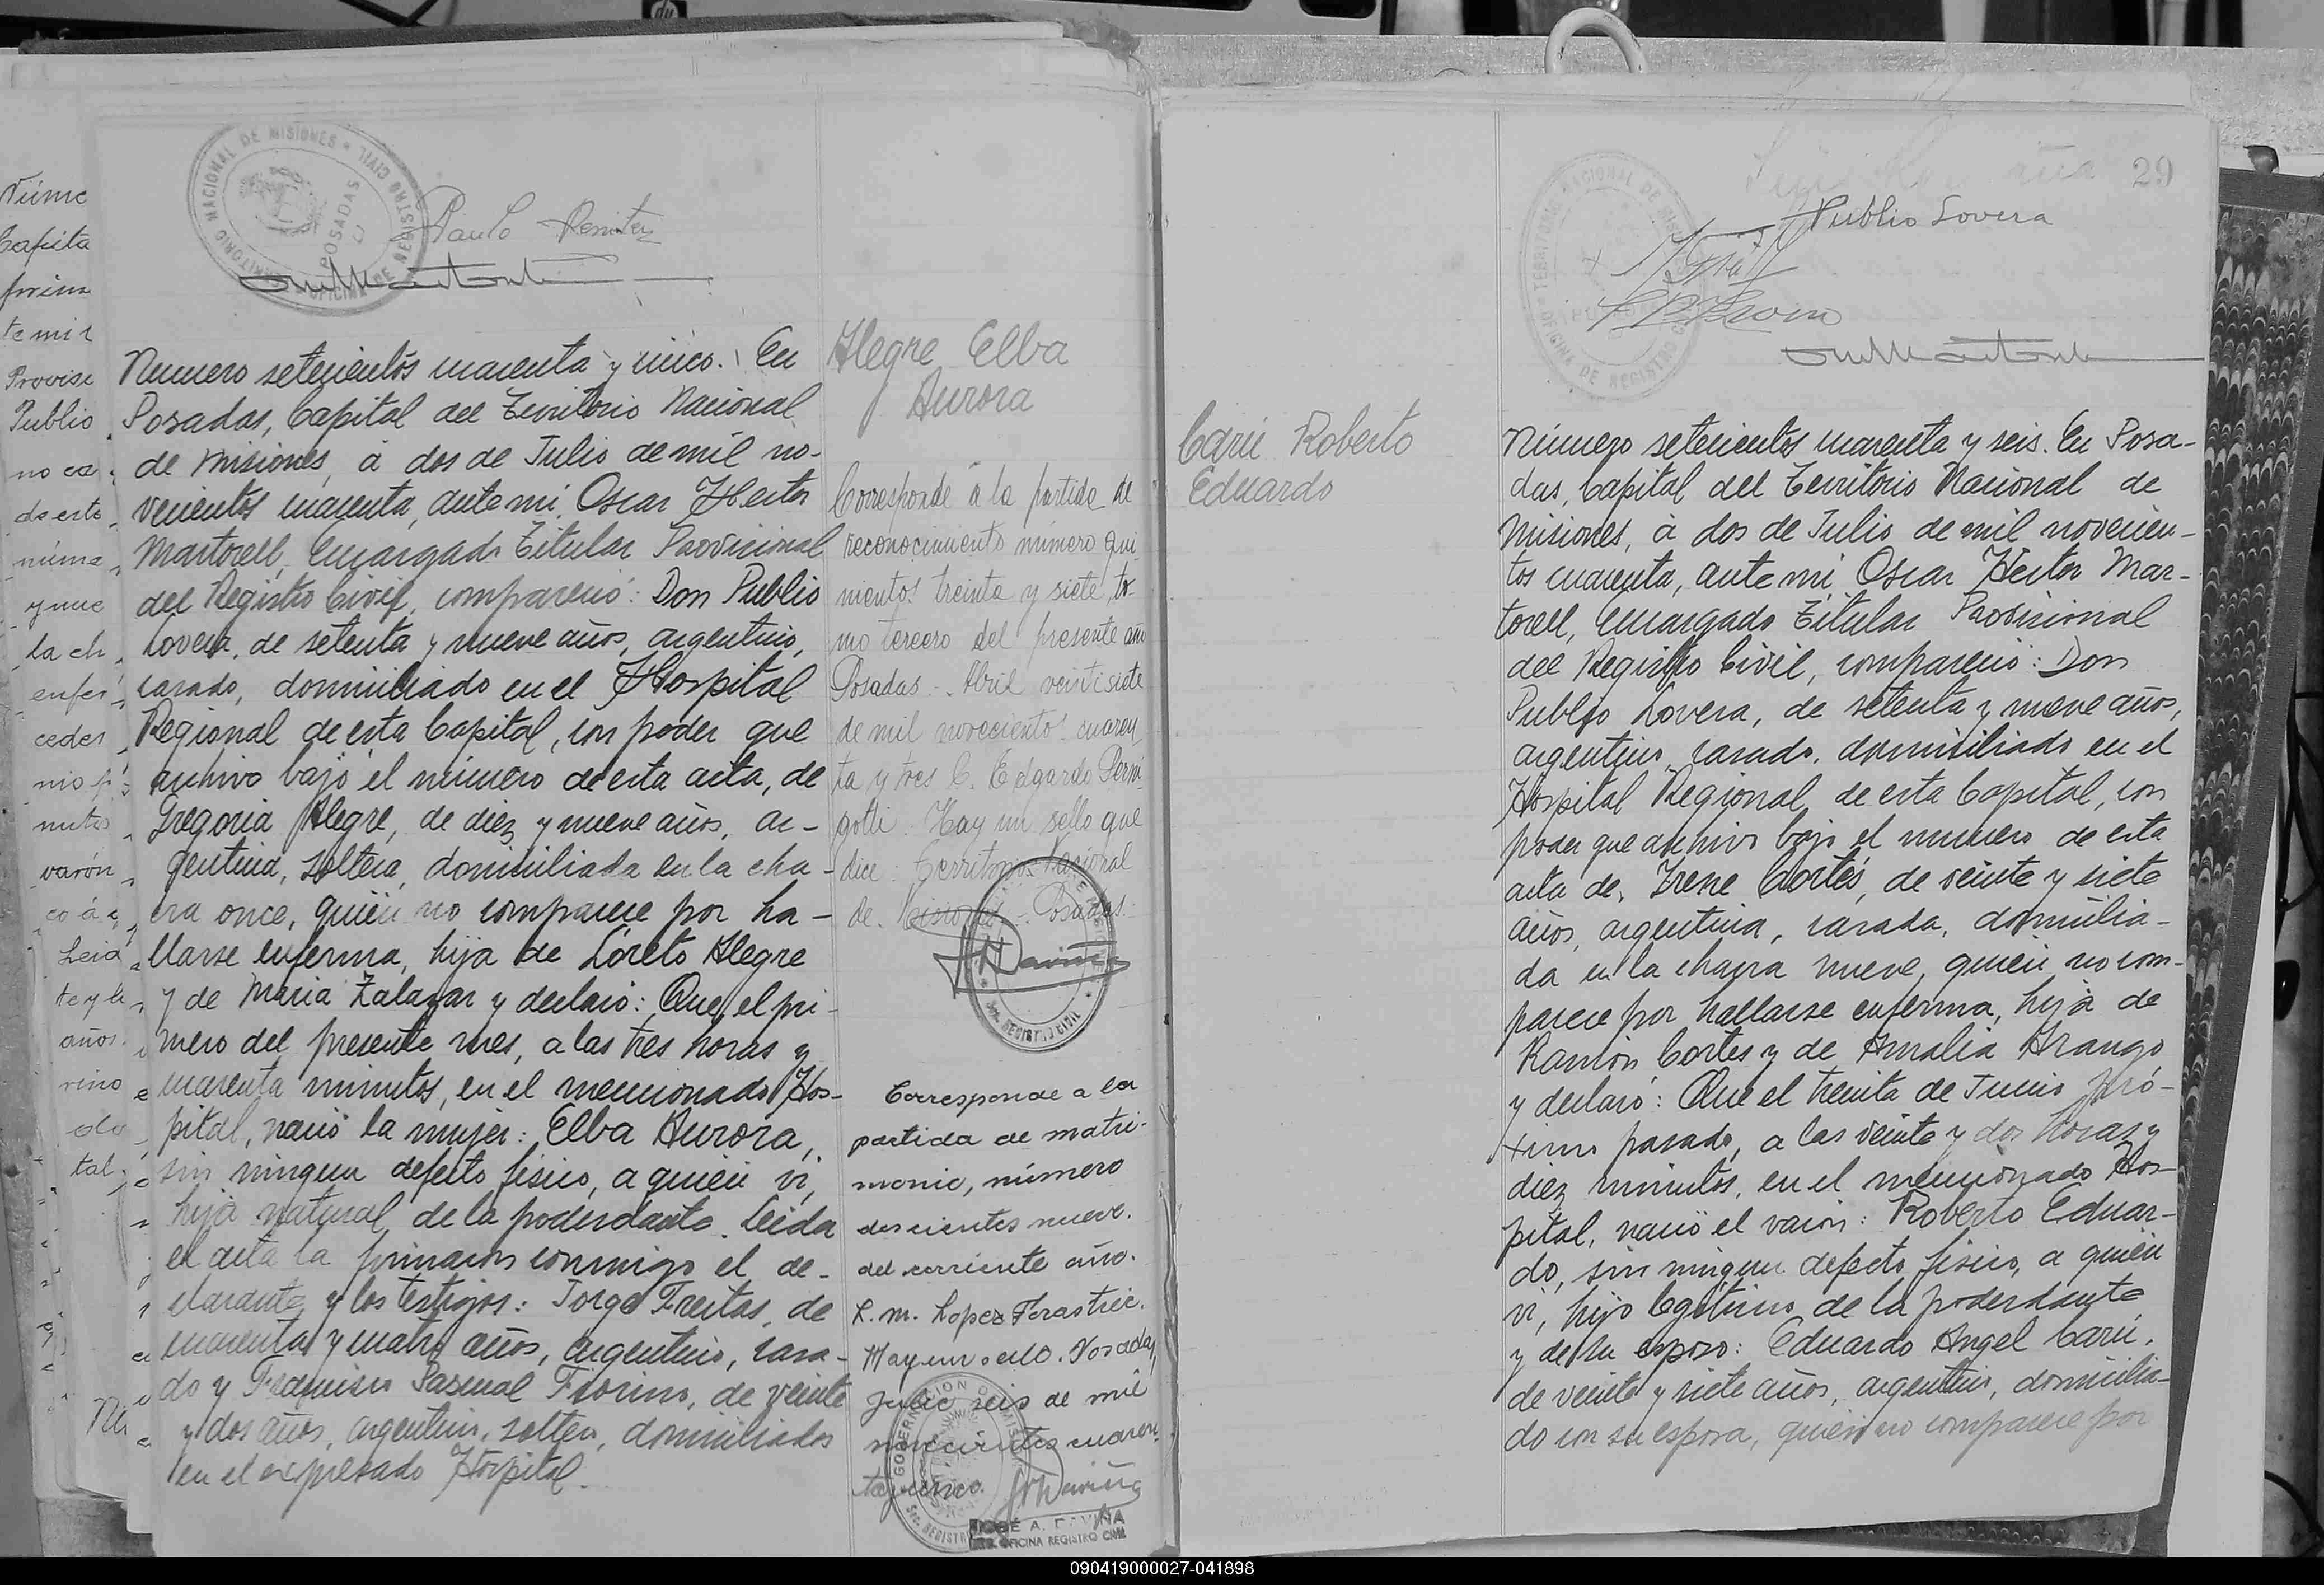 Núme
Capita
te mil
Provisi
Publio
no ca
de esta
núme
y nue
la ch
enfer
ceder
nutos
varón
Leid
te y
años
rino
do
tal
TERRITORIO NACIONAL DE MISIONES
OFICINA DE REGISTRO CIVIL
POSADAS
Numero setecientos cuarenta y cinco. En
Posadas, Capital del Territorio Nacional
de Misiones, á dos de Julio de mil no-
vecientos cuarenta, ante mi Oscar Hector
Martorell, Encargado Titular Provisional
del Registro Civil, compareció: Don Publio
Lovera, de setenta y nueve años, argentino,
casado, domiciliado en el Hospital
Regional de esta Capital, con poder que
archivo bajo el número de esta acta, de
Gregoria Alegre, de diez y nueve años, ar-
gentina, soltera, domiciliada en la cha-
cra once, quién no comparece por ha-
llarse enferma, hija de Loreto Alegre
y de Maria Zalazar y declaró: Que el pri-
mero del presente mes, a las tres horas y
cuarenta minutos, en el mencionado Hos-
pital, nació la mujer: Elba Aurora,
sin ningun defecto fisico, a quién vi,
hija natural de la poderdante. Leida
el acta la firmaron conmigo el de-
clarante y los testigos: Jorge Freitas, de
cuarenta y cuatro años, argentino, casa-
do y Francisco Pascual Fiorino, de veinte
y dos años, argentino, soltero, domiciliados
en el expresado Hospital.
Alegre Elba
Aurora
Corresponde a la partida de
reconocimiento número qui-
nientos treinta y siete, to-
mo tercero del presente año
Posadas - Abril veintisiete
de mil novecientos cuaren
ta y tres C. Edgardo Perni-
gotti. Hay un sello que
dice: Territorio Nacional
de Misiones - Posadas.-
REGISTRO CIVIL
Corresponde a la
partida de matri-
monio, número
doscientos nueve.
del corriente año.
R. M. Lopez Forastier.
Hay un sello. Posadas,
Julio seis de mil
novecientos cuaren
ta y cinco.
GOBERNACION DE MISIONES
JOSÉ A. DAVIÑA
OFICINA REGISTRO CIVIL
29
Publio Lovera
TERRITORIO NACIONAL DE MISIONES
OFICINA DE REGISTRO CIVIL
Carié Roberto
Eduardo
Número setecientos cuarenta y seis. En Posa-
das, Capital del Territorio Nacional de
Misiones, á dos de Julio de mil novecien-
tos cuarenta, ante mi, Oscar Héctor Mar-
torell, Encargado Titular Provisional
del Registro Civil, compareció: Don
Publio Lovera, de setenta y nueve años,
argentino, casado, domiciliado en el
Hospital Regional de esta Capital, con
poder que archivo bajo el numero de esta
acta de, Irene Cortés, de veinte y siete
años, argentina, casada, domicilia-
da en la chacra nueve, quién no com-
parece por hallarse enferma, hija de
Ramón Cortes y de Amalia Arango
y declaró: Que el treinta de Junio pró-
ximo pasado, a las veinte y dos horas y
diez minutos, en el mencionado Hos-
pital, nació el varón: Roberto Eduar-
do, sin ningun defecto fisico, a quién
vi, hijo legitimo de la poderdante
y de su esposo: Eduardo Angel Carié,
de veinte y siete años, argentino, domicilia-
do con su esposa, quién no comparece por
090419000027-041898